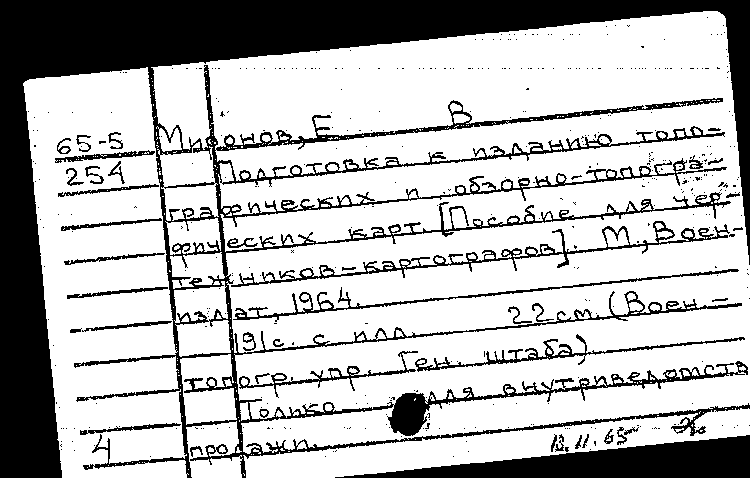 65-5 Миронов, Е В
254 Подготовка к изданию топо-
графических и обзорно-топогра-
фических карт. [Пособие для чер-
тежников-картографов]. М., Воен-
издат, 1964.
191с. с илл. 22см. (Воен.-
топогр. упр. Ген. штаба)
Только для внутриведомств
4 продажи.
12.11.65